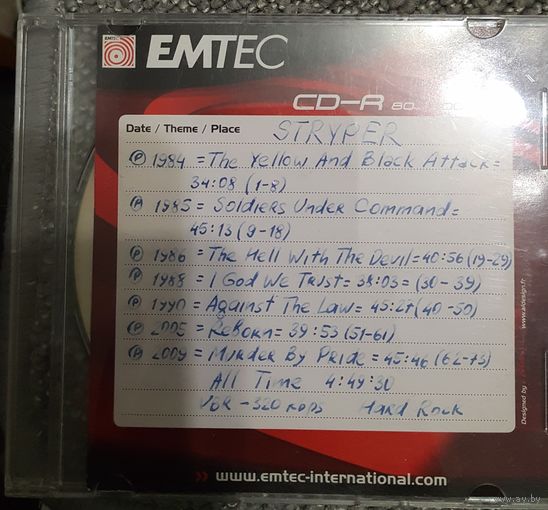 EMTEC
EMTEC
CD-R 80
Date / Theme / Place STRYPER
Ⓟ 1984 = The Yellow And Black Attack =
34:08 (1-8)
Ⓟ 1985 = Soldiers Under Command =
45:13 (9-18)
Ⓟ 1986 = The Hell With The Devil = 40:56 (19-29)
Ⓟ 1988 = I God We Trust = 38:03 = (30-39)
Ⓟ 1990 = Against The Law = 45:27 (40-50)
Ⓟ 2005 = Reborn = 39:53 (51-61)
Ⓟ 2009 = Murder By Pride = 45:46 (62-73)
All Time 4:49:30
VBR - 320 kbps Hard Rock
>> www.emtec-international.com
Designed by
www.aidesign.fr
www.ay.by